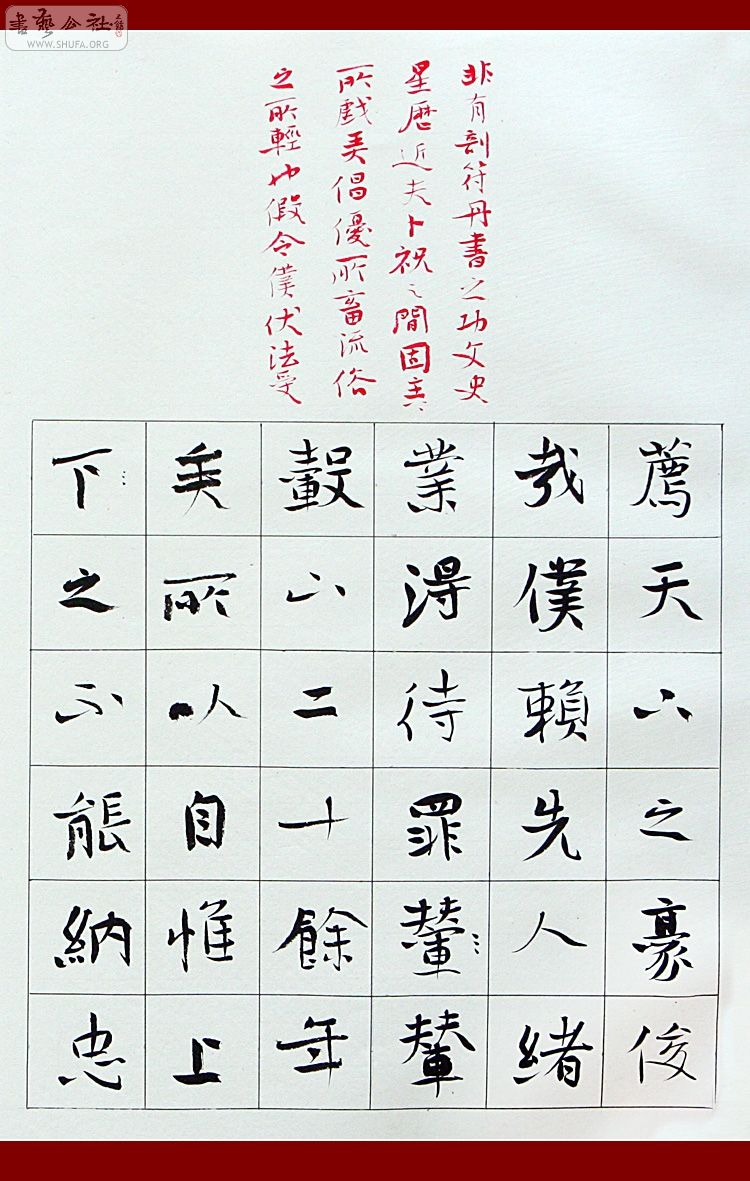 書藝公社
WWW.SHUFA.ORG
非有剖符丹書之功文史
星曆近夫卜祝之間固主
所戲弄倡優所畜流俗
之所輕也假令僕伏法受
薦天下之豪俊
哉僕賴先人緒
業得待罪輦輦
轂下二十餘年
矣所以自惟上
下之不能納忠